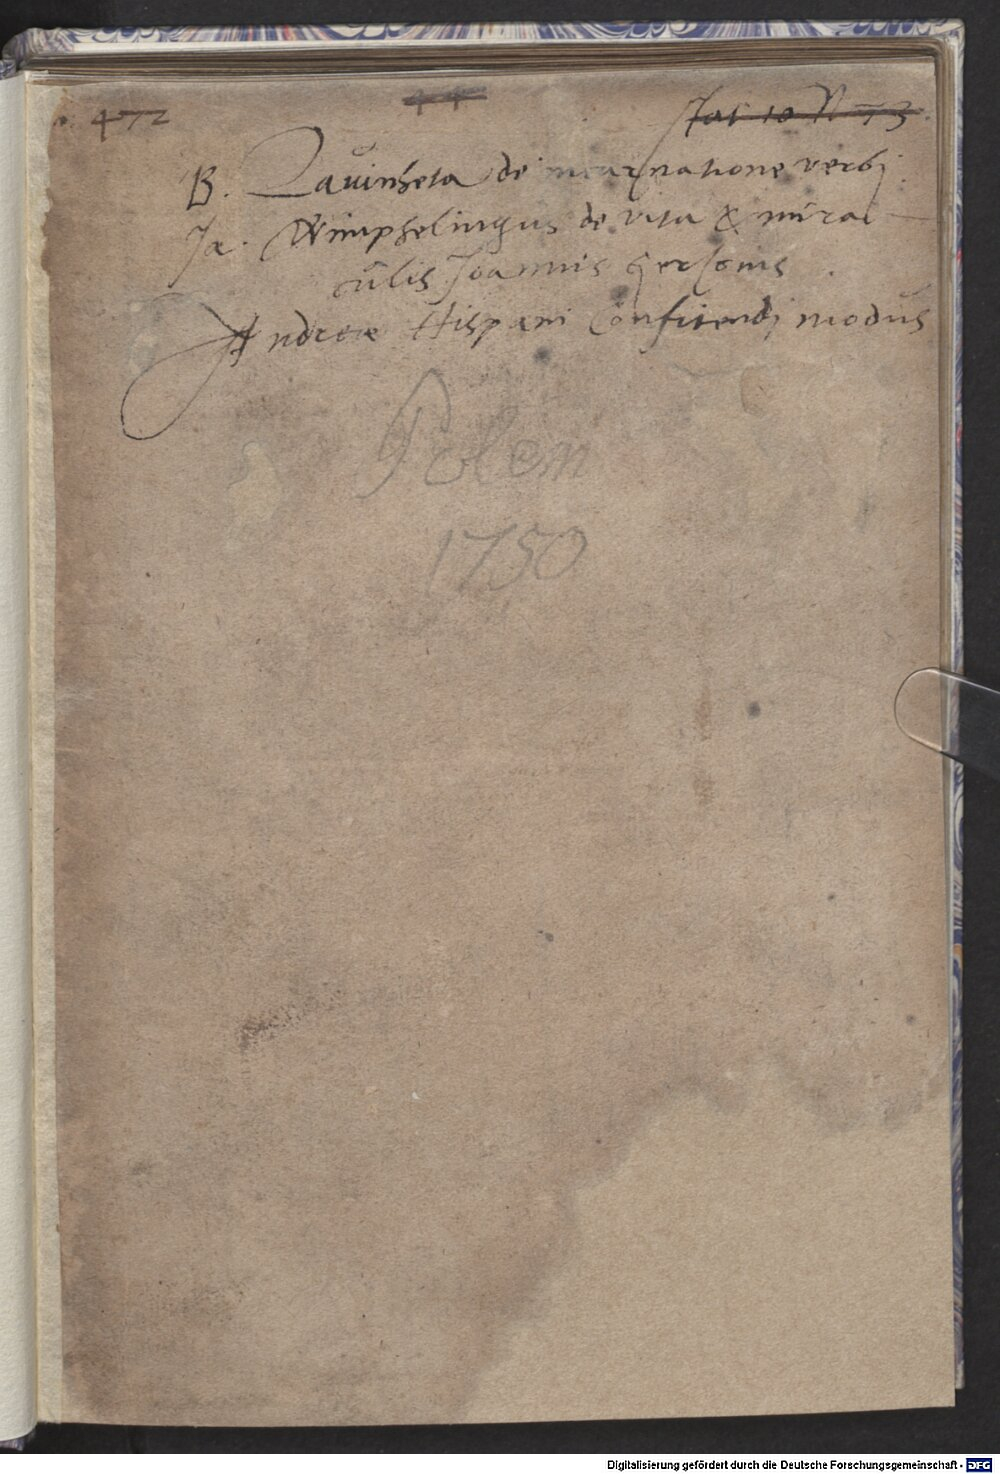 472 44 Stat 10 N 73
B. Lavinheta de incarnatione verbj.
Ja. Wimphelingus de vita & mira-
cŭlis Joannis Gersonis.
Andreæ Hispani Confitendj modŭs
Polem
1750
Digitalisierung gefördert durch die Deutsche Forschungsgemeinschaft - DFG